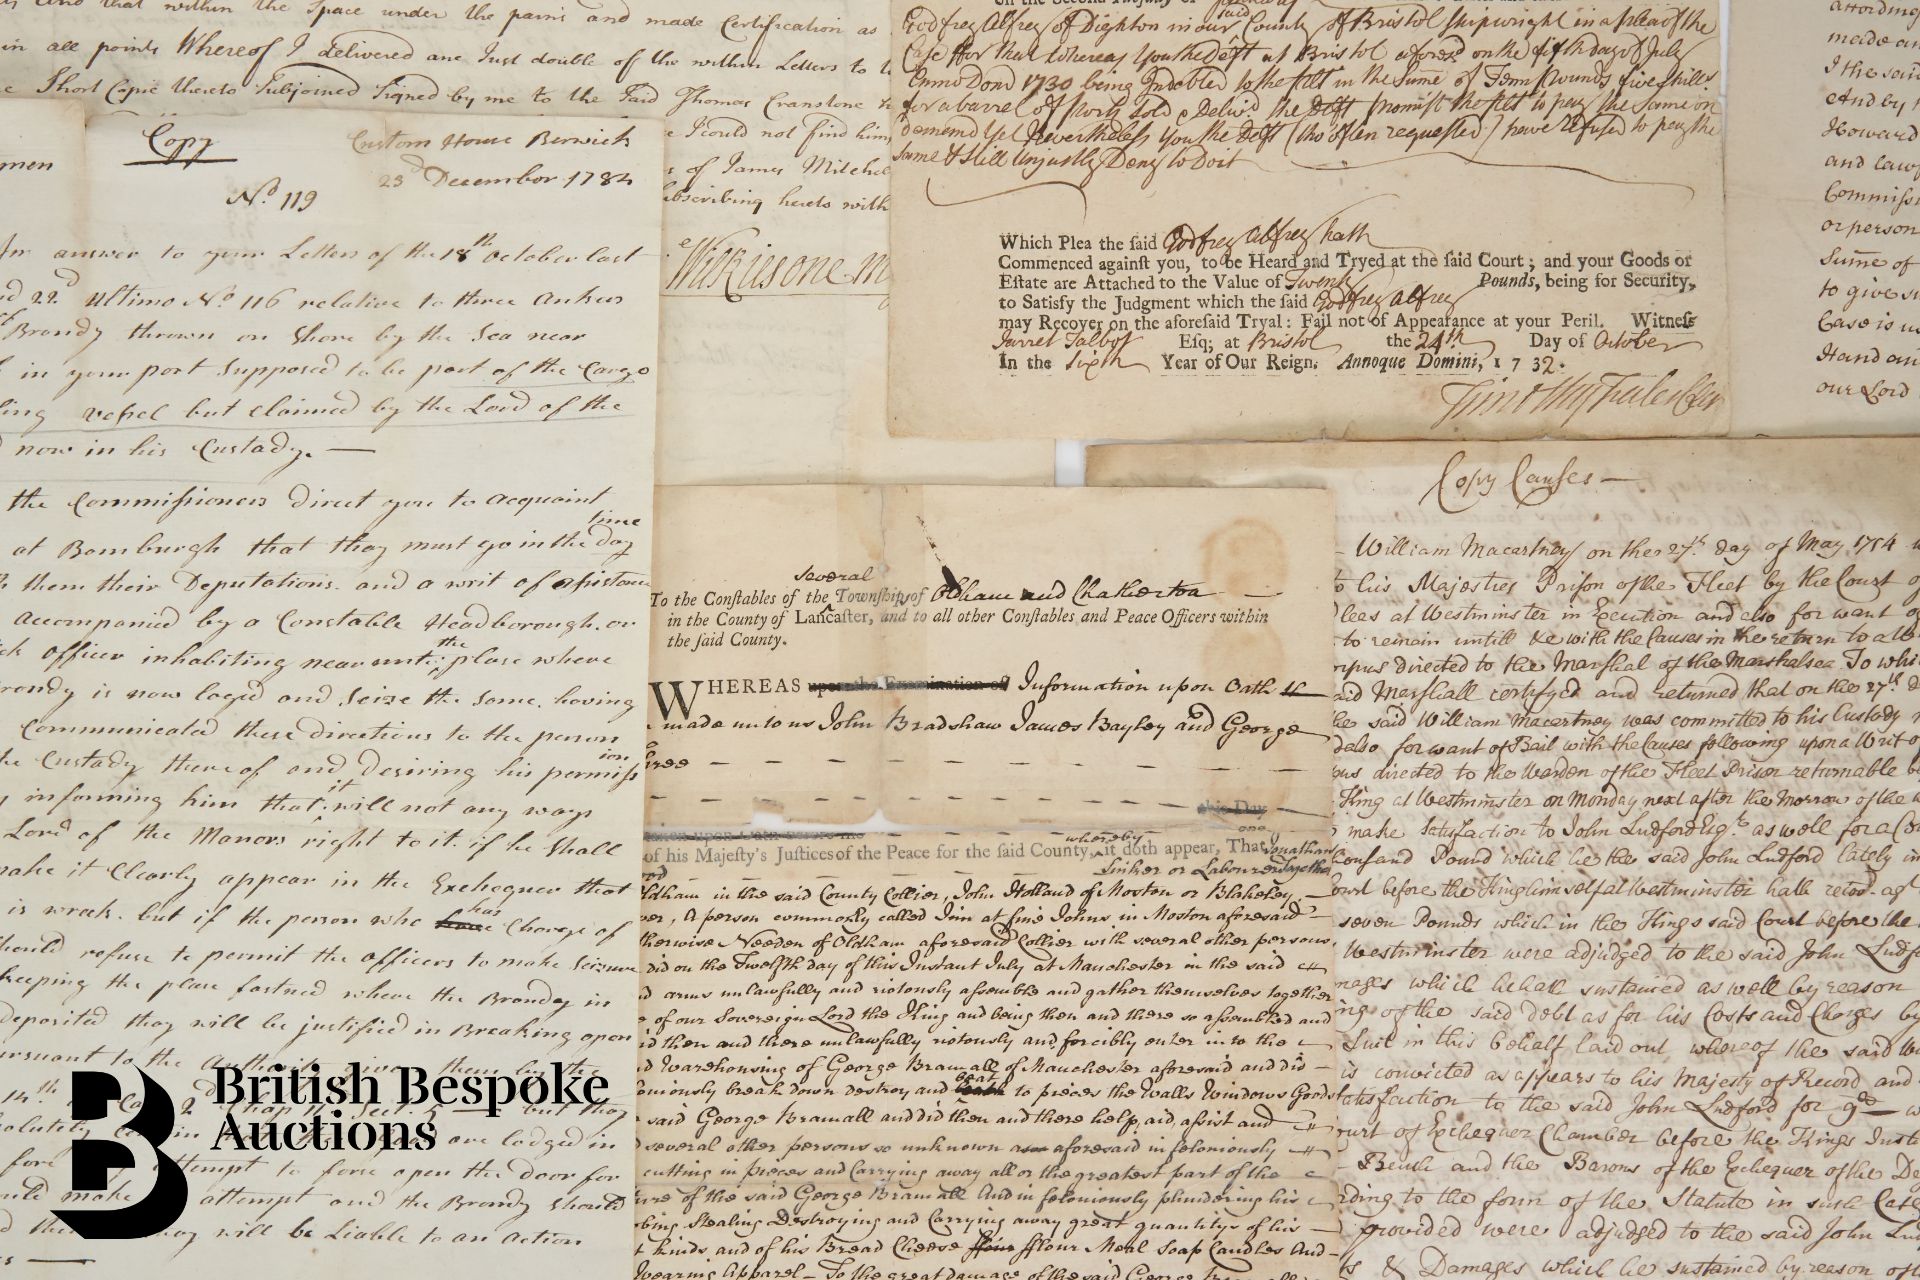 that within the Space under the pains and made Certification as
in all points Whereof I delivered ane Just double of the within Letters to
Short Copie thereto Subjoined Signed by me to the Said Thomas Cranstone
I could not find him,
of James Mitchel
subscribing hereto with
Wilkiesone
men
Copy
Custom House Berwick
23d December 1784
No. 119
In answer to your Letters of the 18th October last
22d Ultimo No. 116 relative to three Ankers
Brandy thrown on Shore by the Sea near
in your port Supposed to be part of the Cargo
vessel but claimed by the Lord of the
now in his Custady. —
the Commissioners Direct you to acquaint
time
at Bamburgh that they must go in the day
them their Deputations and a writ of assistance
accompanied by a Constable Headborough or
the
officer inhabiting near unto place where
Brandy is now lodged and Seize the Same, having
Communicated these directions to the person
ion
Custady thereof and Desiring his permiss
it
informing him that will not any ways
Lord of the Manors right to it. if he Shall
make it Clearly appear in the Exchequer that
has
is wreck. but if the person who have Charge of
Should refuse to permit the officers to make Seizure
keeping the place fastned where the Brandy in
deposited they will be justified in Breaking open
but they
are lodged in
attempt to force open the door for
make attempt and the Brandy Should
they will be Liable to an action
Godfrey Alfrey of Dighton in our County of Bristol Shipwright in a plea of the
Case ffor that Whereas You the Deft at Bristol aforesd on the fifth day of July
Anno Dom 1730 being Indebted to the Plt in the Sume of Tenn Pounds five Shills
for a barrel of Pork Sold & Deliv'd the Deft promist the Plt to pay the Same on
Demand Yet Nevertheless You the Deft (tho often requested) have refused to pay the
Same & Still Unjustly Deny to Do it
Which Plea the said Godfrey Alfrey hath
Commenced against you, to be Heard and Tryed at the said Court; and your Goods or
Estate are Attached to the Value of Twenty Pounds, being for Security,
to Satisfy the Judgment which the said Godfrey Alfrey
may Recover on the aforesaid Tryal: Fail not of Appearance at your Peril. Witness
Jarret Talbot Esq; at Bristol the 24th Day of October
In the Sixth Year of Our Reign. Annoque Domini, 1732.
made an
I the said
And by
Howard
and law
Commissi
or person
Sume of
to give
Case is
Hand an
our Lord
several
To the Constables of the Townships of Oldham and Chatterton
in the County of Lancaster, and to all other Constables and Peace Officers within
the said County.
WHEREAS upon the Examination of Information upon Oath is
made unto us John Bradshaw James Bayley and George
this Day
taken upon Oath before me
whereby one
of his Majesty's Justices of the Peace for the said County, it doth appear, That Jonathan
Sinker or Labourer Together
Oldham in the said County Collier, John Holland of Moston or Blakeley,
A person commonly called Jim at fine Johns in Moston aforesaid
otherwise Needen of Oldham aforesaid Collier with several other persons
did on the Twelfth day of this Instant July at Manchester in the said
arms unlawfully and riotously assemble and gather themselves together
of our Sovereign Lord the King and being then and there so assembled and
did then and there unlawfully riotously and forcibly enter into the
Warehousing of George Bramall of Manchester aforesaid and did
beat
break down destroy and to pieces the Walls Windows Goods
said George Bramall and did then and there help, aid, assist and
several other persons so unknown as aforesaid in feloniously
cutting in pieces and Carrying away all or the greatest part of the
of the said George Bramall And in feloniously plundering his
Stealing Destroying and Carrying away great quantitys of his
kinds and of his Bread Cheese fflour Meal Soap Candles And
Wearing Apparel — To the great damage of the said George
Copy Causes —
William Macartney on the 27th day of May 1754
to his Majesties Prison of the Fleet by the Court of
Pleas at Westminster in Execution and also for want of
to remain untill &c with the Causes in the return to a
Corpus directed to the Marshal of the Marshalsea To which
said Marshall certifyed and returned that on the 27th
the said William Macartney was committed to his Custody
also for want of Bail with the Causes following upon a Writ of
directed to the Warden of the Fleet Prison returnable
King at Westminster on Monday next after the Morrow of the
make Satisfaction to John Ludford Esqr. as well for a
thousand Pound which he the said John Ludford lately in
Court before the King himself at Westminster hall
seven Pounds which in the Kings said Court before the
Westminster were adjudged to the said John Ludford
damages which he hath sustained as well by reason
of the said debt as for his Costs and Charges by
Suit in this behalf laid out whereof the said
is convicted as appears to his Majesty of Record and
Satisfaction to the said John Ludford for
Court of Exchequer Chamber before the Kings
Bench and the Barons of the Exchequer of the
according to the form of the Statute in such Case
provided were adjudged to the said John
& Damages which he sustained by reason of
British Bespoke
Auctions